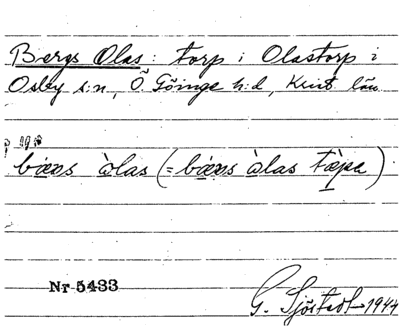 Bergs Olas: torp i Olastorp i
Osby s:n, Ö. Göinge h:d, Krist län
bæns àlas (= bæns àlas tæpa)
Nr 5433
G. Sjöstedt 1944